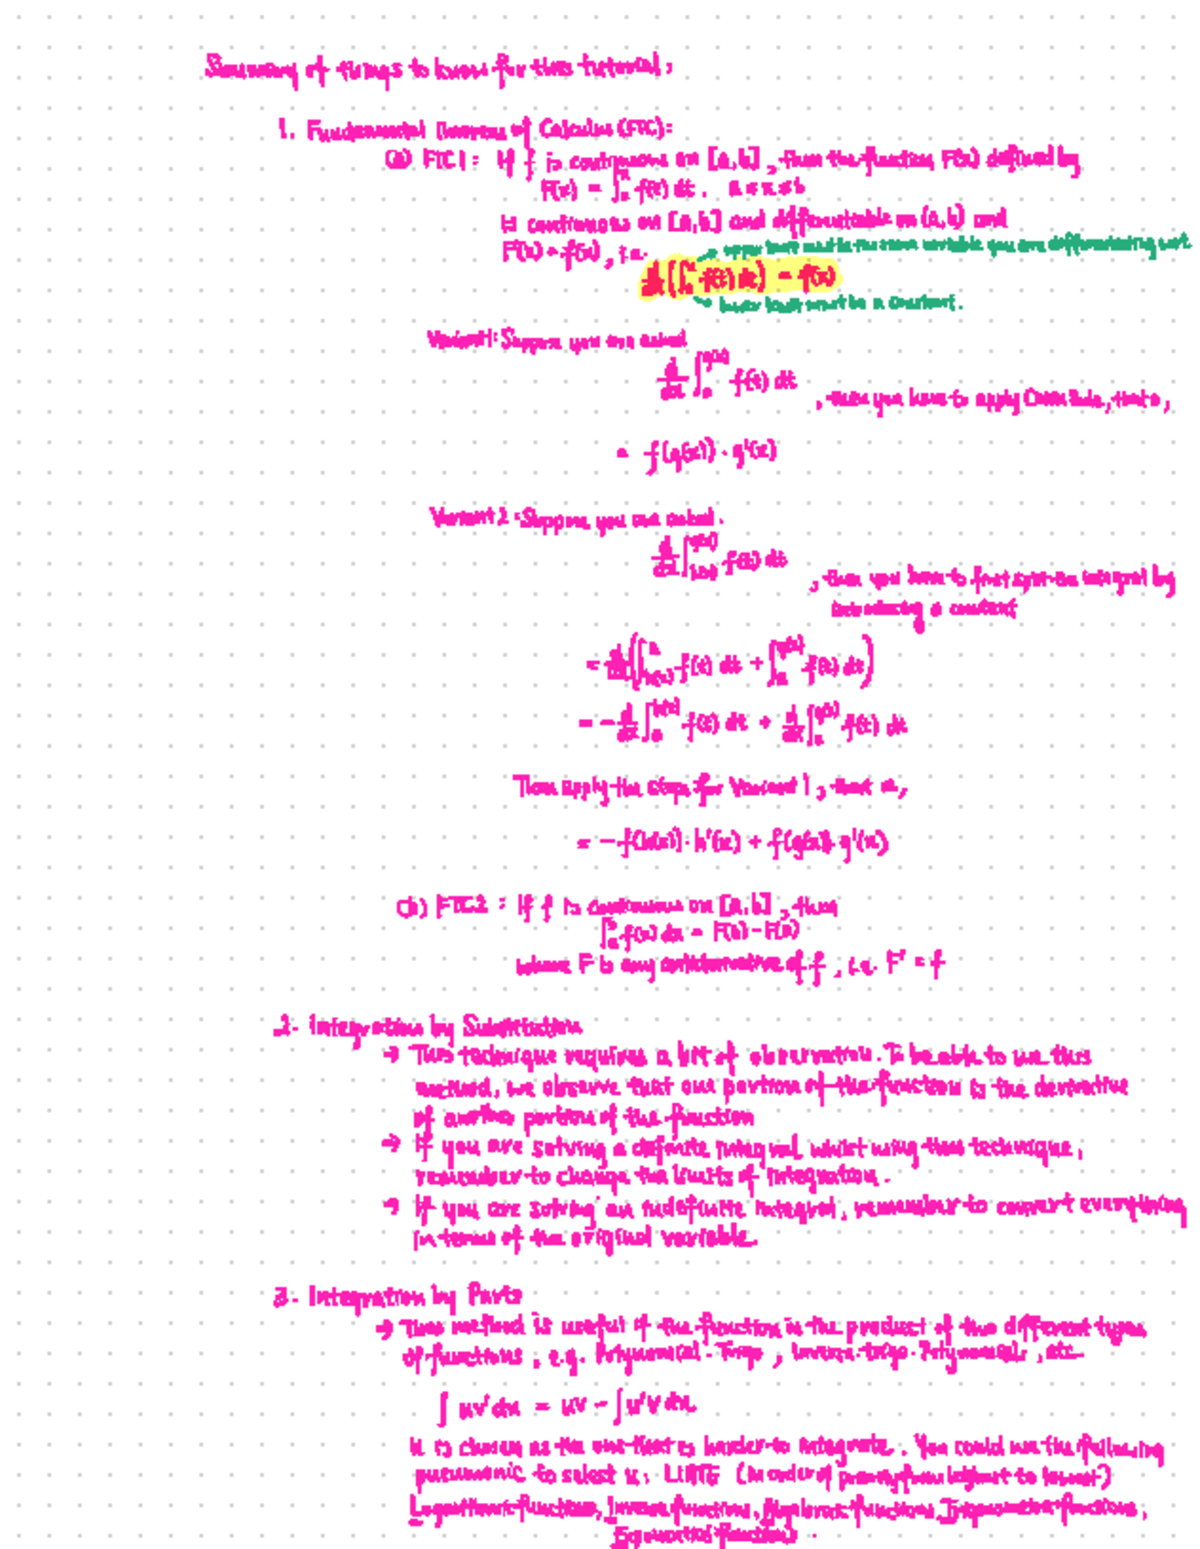 Summary of things to know for this tutorial:
1. Fundamental Theorem of Calculus (FTC):
(a) FTC1: If f is continuous on [a,b], then the function F(x) defined by
F(x) = ∫ₐˣ f(t) dt. a ≤ x ≤ b
is continuous on [a,b] and differentiable on (a,b) and
F'(x) = f(x), i.e.
upper limit must be the same variable you are differentiating wrt
d/dx (∫ₐˣ f(t) dt) = f(x)
lower limit must be a constant.
Variant 1: Suppose you are asked
d/dx ∫ₐ^g(x) f(t) dt
, then you have to apply Chain Rule, that is,
= f(g(x)) · g'(x)
Variant 2: Suppose you are asked.
d/dx ∫_h(x)^g(x) f(t) dt
, then you have to first split the integral by
introducing a constant
= d/dx (∫_h(x)^a f(t) dt + ∫ₐ^g(x) f(t) dt)
= - d/dx ∫ₐ^h(x) f(t) dt + d/dx ∫ₐ^g(x) f(t) dt
Then apply the steps for Variant 1, that is,
= - f(h(x)) · h'(x) + f(g(x)) · g'(x)
(b) FTC2: If f is continuous on [a,b], then
∫ₐᵇ f(x) dx = F(b) - F(a)
where F is any antiderivative of f, i.e. F' = f
2. Integration by Substitution
→ This technique requires a bit of observation. To be able to use this
method, we observe that one portion of the function is the derivative
of another portion of the function
→ If you are solving a definite integral whilst using this technique,
remember to change the limits of integration.
→ If you are solving an indefinite integral, remember to convert everything
in terms of the original variable.
3. Integration by Parts
→ This method is useful if the function is the product of two different types
of functions, e.g. Polynomial · Trigo, Inverse trigo · Polynomial, etc.
∫ uv' dx = uv - ∫ u'v dx
u is chosen as the one that is harder to integrate. You could use the following
pneumonic to select u: LIATE (in order of priority from highest to lowest)
Logarithmic functions, Inverse functions, Algebraic functions, Trigonometric functions,
Exponential functions.